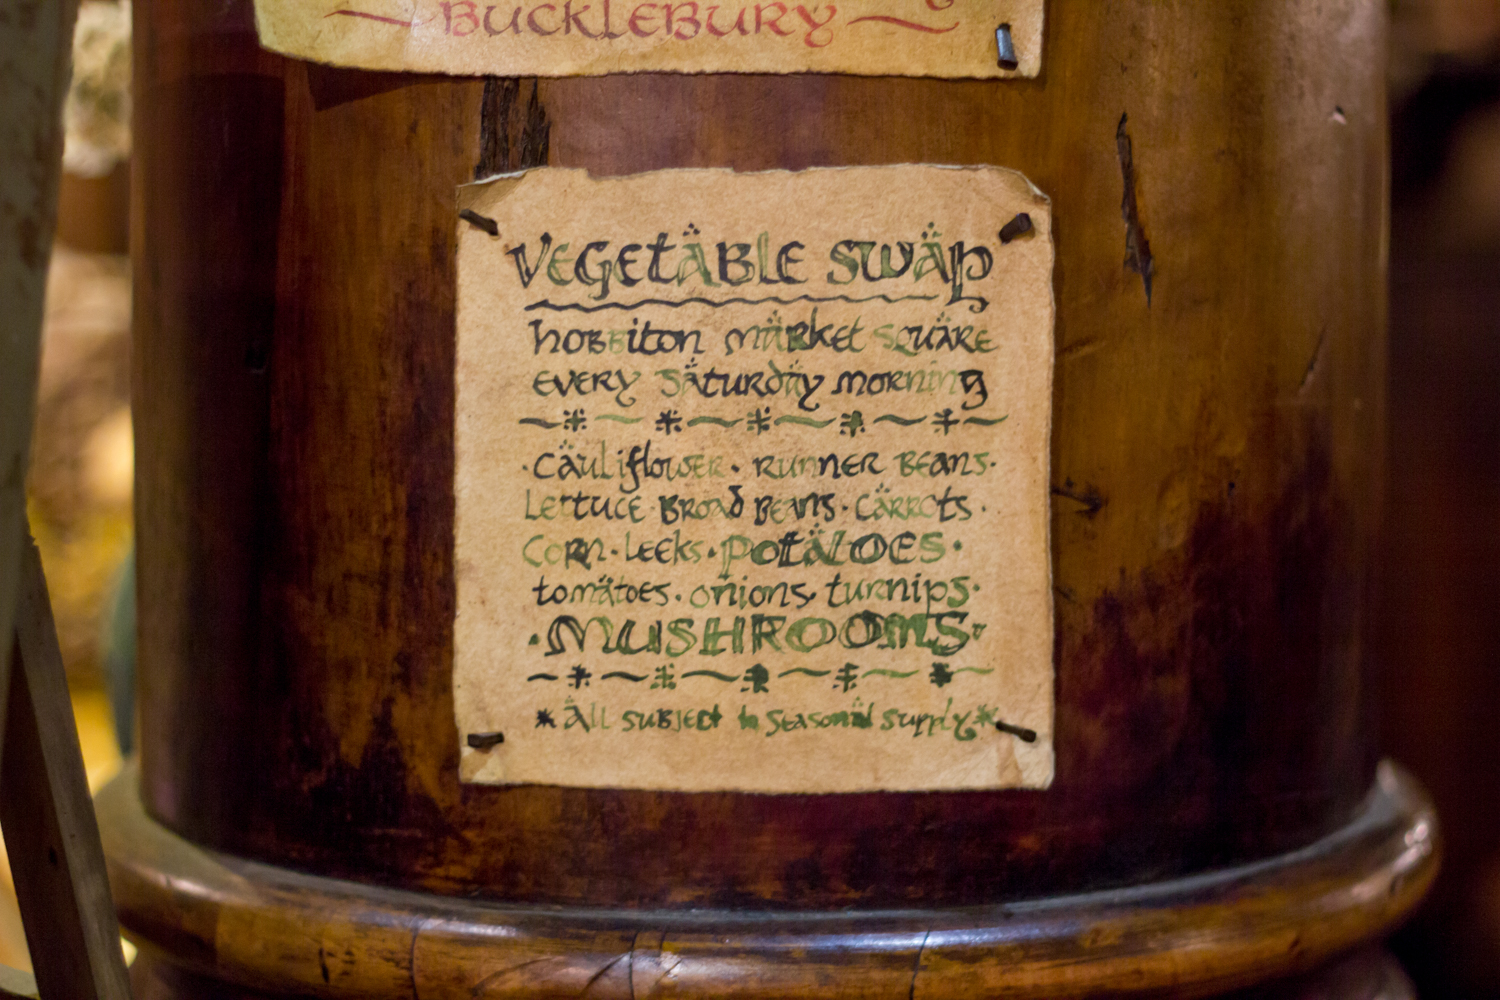 BUCKLEBURY
VEGETABLE SWAP
HOBBITON MARKET SQUARE
EVERY SATURDAY MORNING
· CAULIFLOWER · RUNNER BEANS ·
LETTUCE · BROAD BEANS · CARROTS ·
CORN · LEEKS · POTATOES ·
TOMATOES · ONIONS · TURNIPS ·
· MUSHROOMS ·
* ALL SUBJECT to SEASONAL SUPPLY *